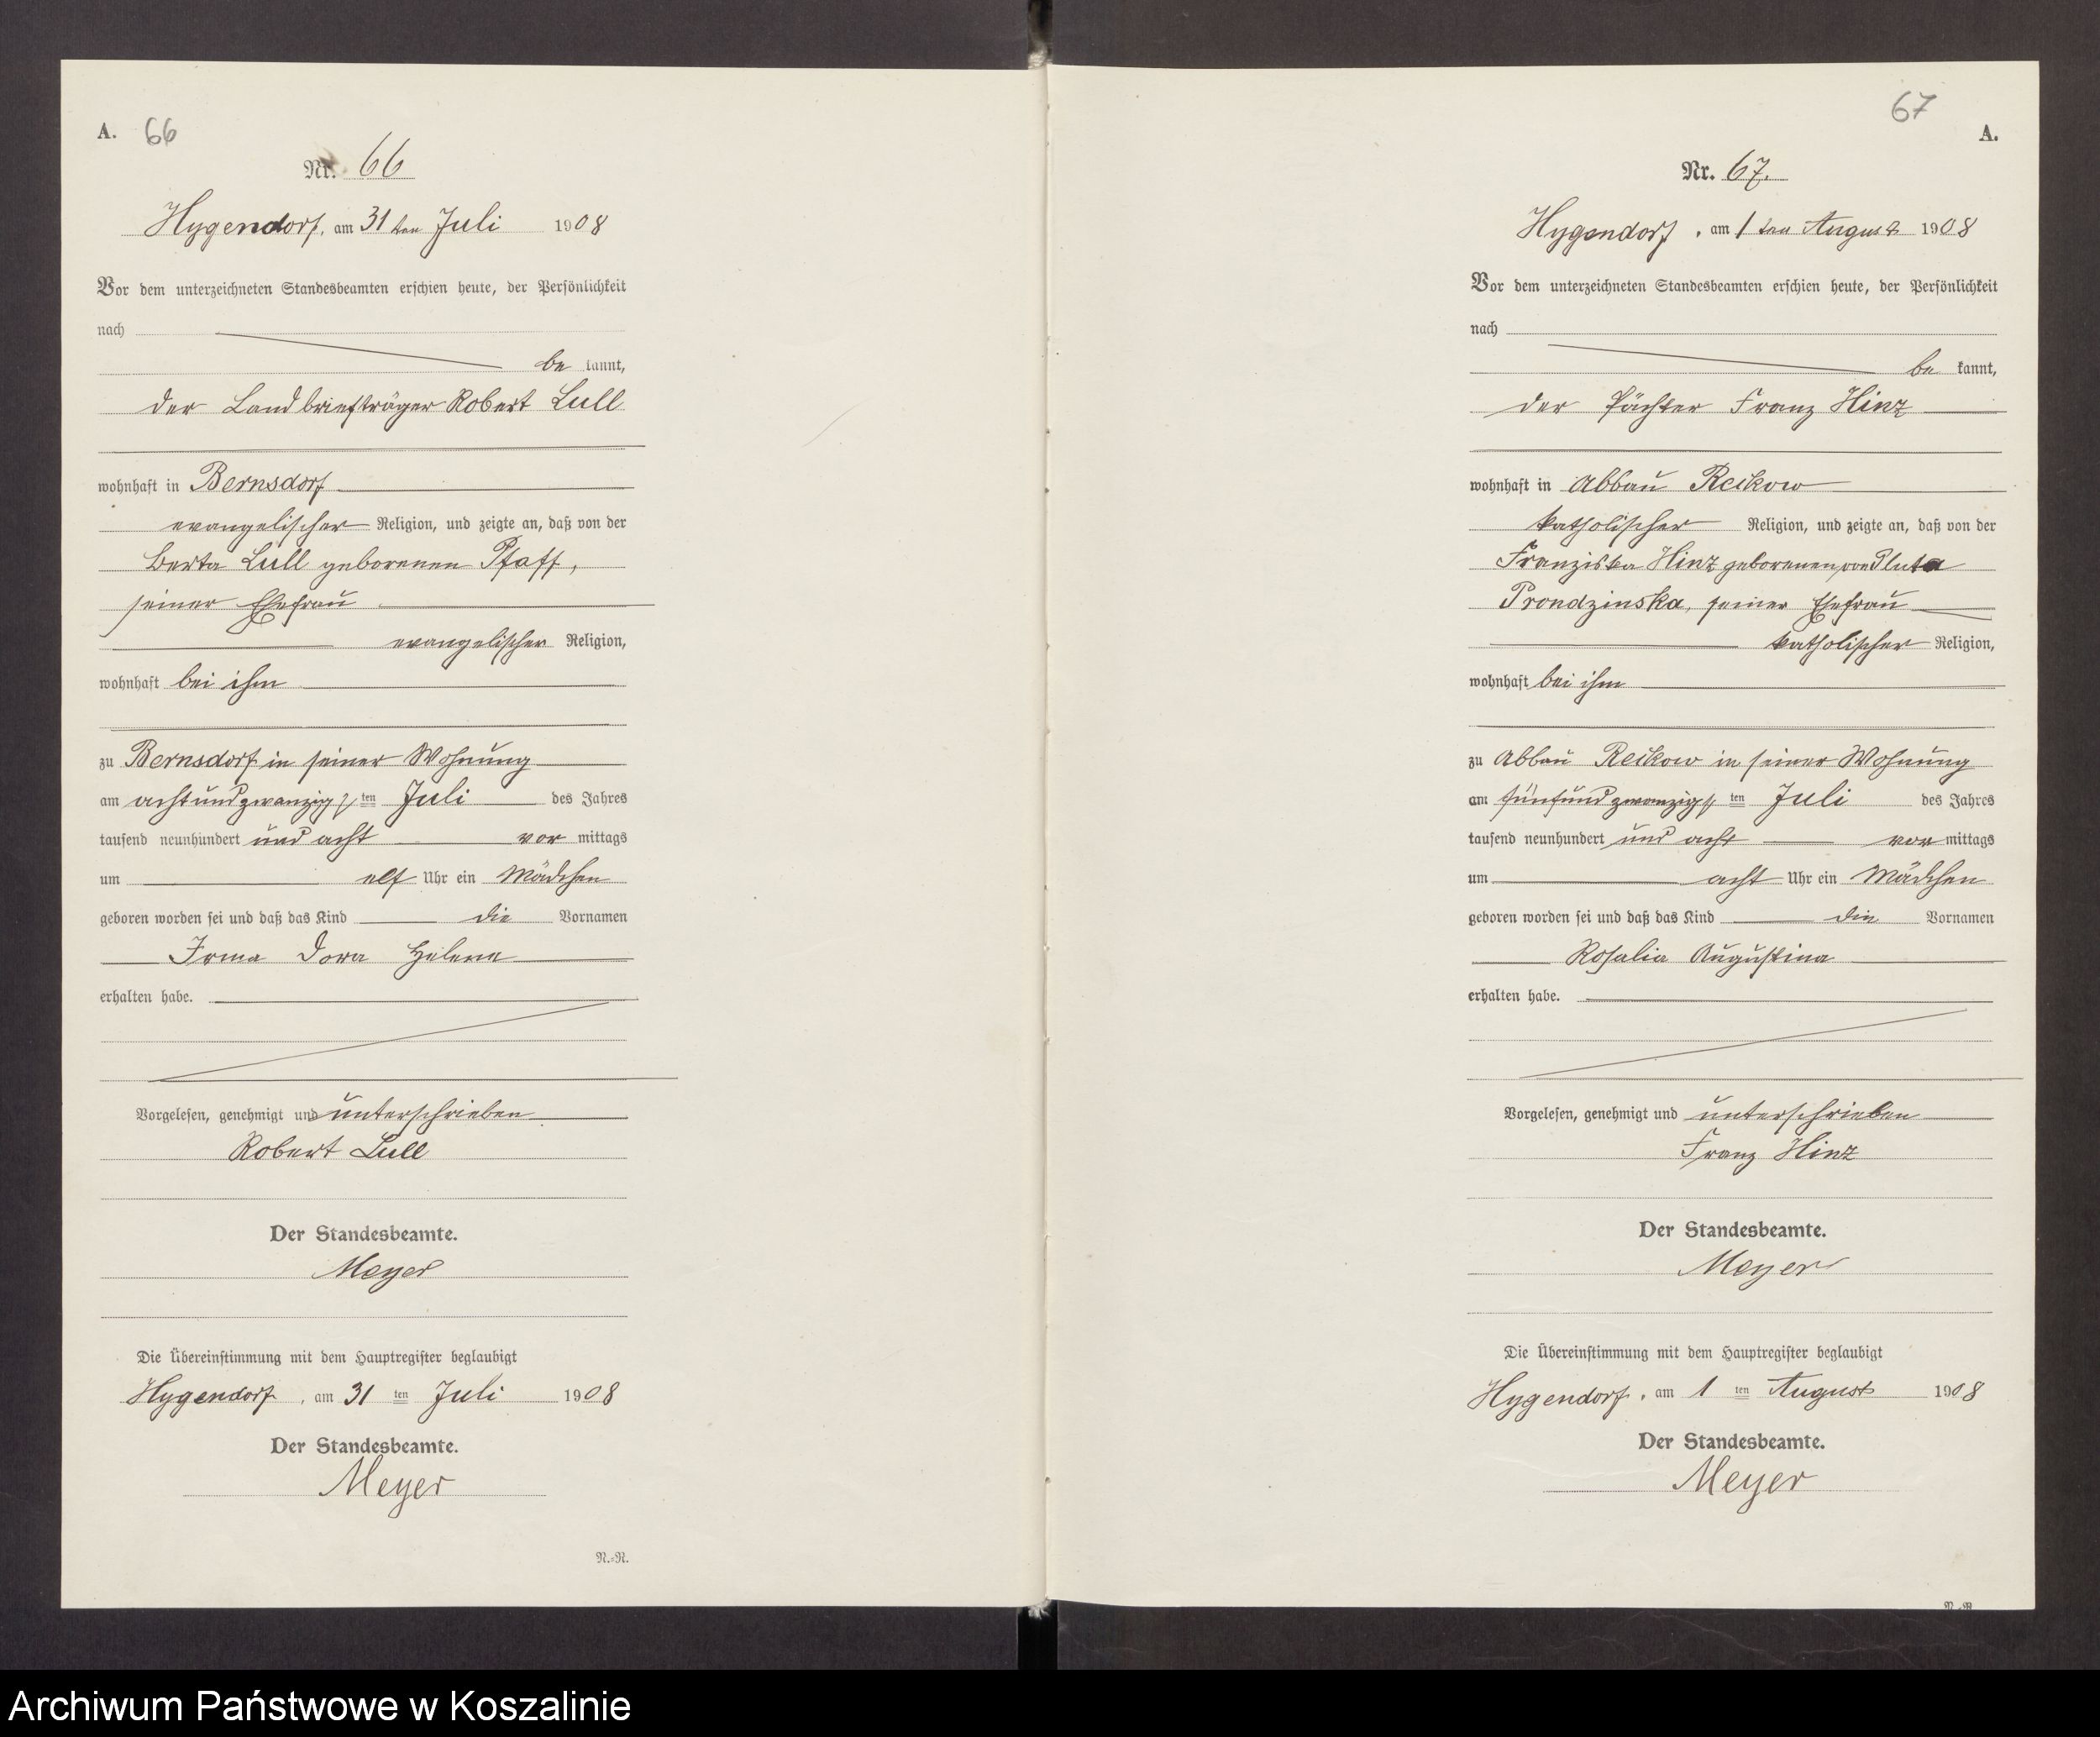 A. 66
Nr. 66
Hygendorf, am 31 ten Juli 1908
Vor dem unterzeichneten Standesbeamten erschien heute, der Persönlichkeit
nach
be kannt,
der Landbriefträger Robert Lull
wohnhaft in Bernsdorf
evangelischer Religion, und zeigte an, daß von der
Berta Lull geborenen Pfaff,
seiner Ehefrau
evangelischer Religion,
wohnhaft bei ihm
zu Bernsdorf in seiner Wohnung
am achtundzwanzigsten Juli des Jahres
tausend neunhundert und acht vor mittags
um elf Uhr ein Mädchen
geboren worden sei und daß das Kind die Vornamen
Irma Dora Helene
erhalten habe.
Vorgelesen, genehmigt und unterschrieben
Robert Lull
Der Standesbeamte.
Meyer
Die Übereinstimmung mit dem Hauptregister beglaubigt
Hygendorf, am 31 ten Juli 1908
Der Standesbeamte.
Meyer
N.-N.
67
A.
Nr. 67.
Hygendorf, am 1 ten August 1908
Vor dem unterzeichneten Standesbeamten erschien heute, der Persönlichkeit
nach
be kannt,
der Pächter Franz Hinz
wohnhaft in Abbau Reikow
katholischer Religion, und zeigte an, daß von der
Franziska Hinz geborenen von Pluta
Prondzinska, seiner Ehefrau
katholischer Religion,
wohnhaft bei ihm
zu Abbau Reikow in seiner Wohnung
am fünfundzwanzigsten Juli des Jahres
tausend neunhundert und acht vor mittags
um acht Uhr ein Mädchen
geboren worden sei und daß das Kind die Vornamen
Rosalia Augustina
erhalten habe.
Vorgelesen, genehmigt und unterschrieben
Franz Hinz
Der Standesbeamte.
Meyer
Die Übereinstimmung mit dem Hauptregister beglaubigt
Hygendorf, am 1 ten August 1908
Der Standesbeamte.
Meyer
Archiwum Państwowe w Koszalinie